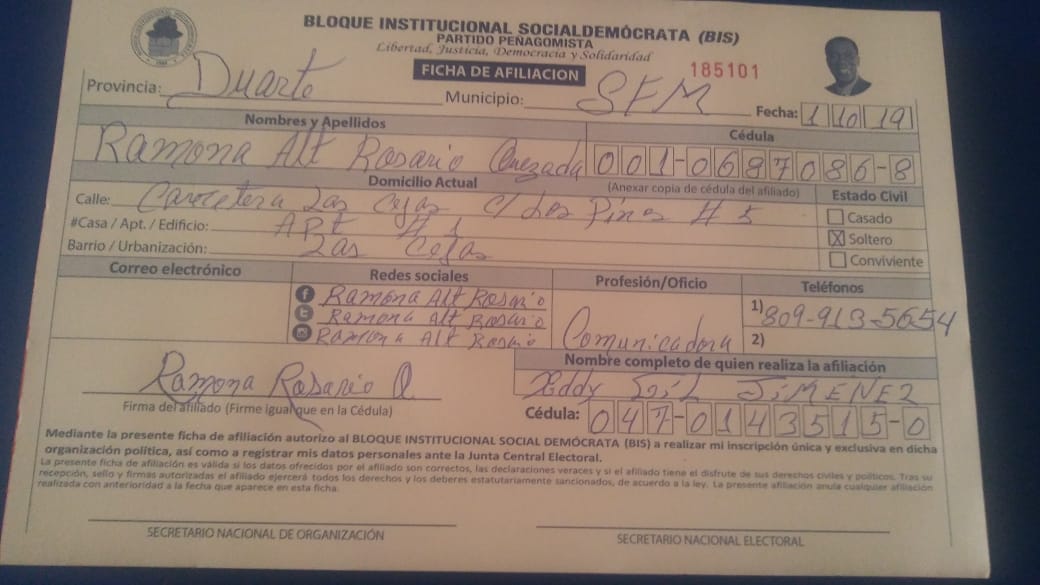 BLOQUE INSTITUCIONAL SOCIALDEMÓCRATA (BIS)
PARTIDO PEÑAGOMISTA
Libertad, Justicia, Democracia y Solidaridad
FICHA DE AFILIACION
185101
Provincia: Duarte Municipio: SFM Fecha: 1 10 19
Nombres y Apellidos Cédula
Ramona Alt Rosario Quezada 001-0687086-8
Domicilio Actual (Anexar copia de cédula del afiliado) Estado Civil
Calle: Carretera Las Cejas C/ Los Pinos # 5 Casado
#Casa / Apt. / Edificio: APt # 1 X Soltero
Barrio / Urbanización: Las Cejas Conviviente
Correo electrónico Redes sociales Profesión/Oficio Teléfonos
Ramona Alt Rosario 1) 809-913-5654
Ramona Alt Rosario
Ramona Alt Rosario Comunicadora 2)
Nombre completo de quien realiza la afiliación
Ramona Rosario Q JiMENEZ
Firma del afiliado (Firme igual que en la Cédula) Cédula: 047-0143515-0
Mediante la presente ficha de afiliación autorizo al BLOQUE INSTITUCIONAL SOCIAL DEMÓCRATA (BIS) a realizar mi inscripción única y exclusiva en dicha
organización política, así como a registrar mis datos personales ante la Junta Central Electoral.
La presente ficha de afiliación es válida si los datos ofrecidos por el afiliado son correctos, las declaraciones veraces y si el afiliado tiene el disfrute de sus derechos civiles y políticos. Tras su
recepción, sello y firmas autorizadas el afiliado ejercerá todos los derechos y los deberes estatutariamente sancionados, de acuerdo a la ley. La presente afiliación anula cualquier afiliación
realizada con anterioridad a la fecha que aparece en esta ficha.
SECRETARIO NACIONAL DE ORGANIZACIÓN SECRETARIO NACIONAL ELECTORAL